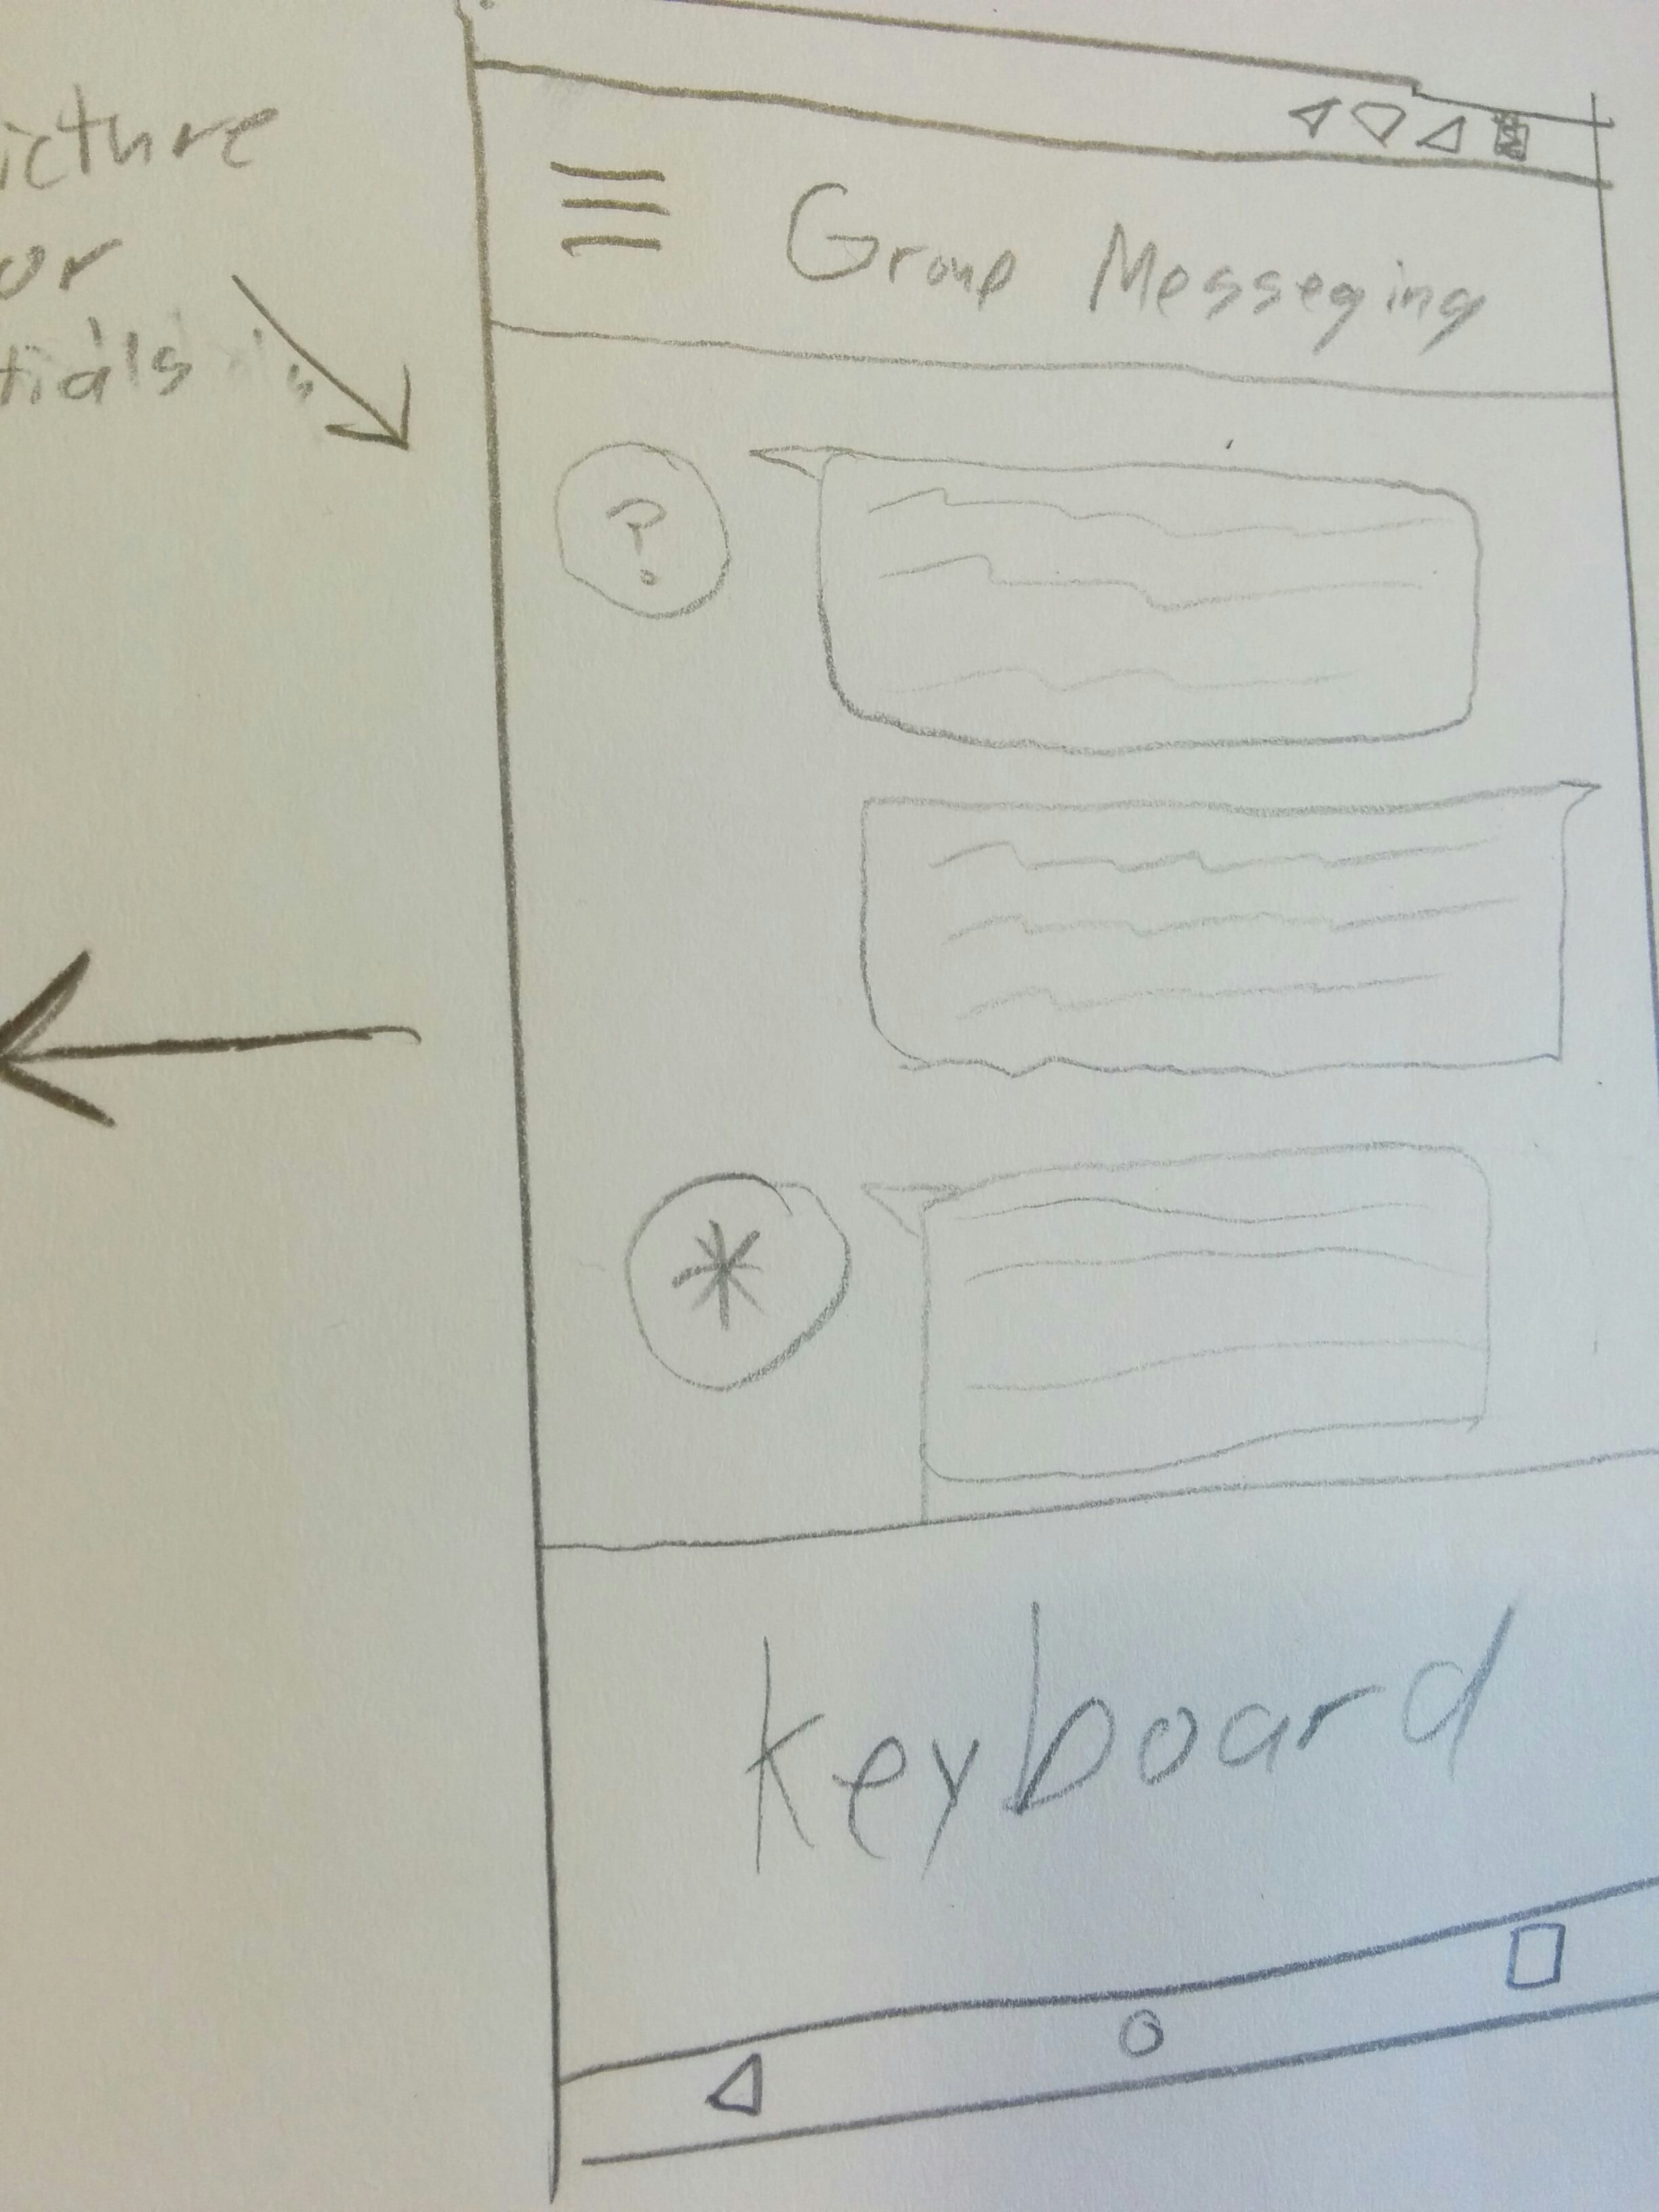 icture
or
tials
Group Messeging
?
*
keyboard